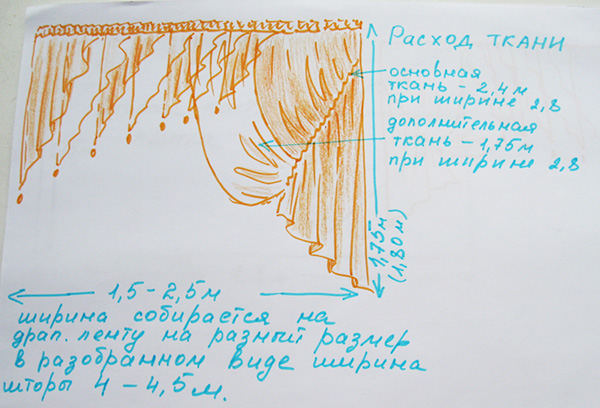 Расход ткани
основная
ткань - 2,4 м
при ширине 2,8
дополнительная
ткань - 1,75 м
при ширине 2,8
1,75 м
(1,80 м)
1,5 - 2,5 м
ширина собирается на
драп. ленту на разный размер
в разобранном виде ширина
шторы 4 - 4,5 м.